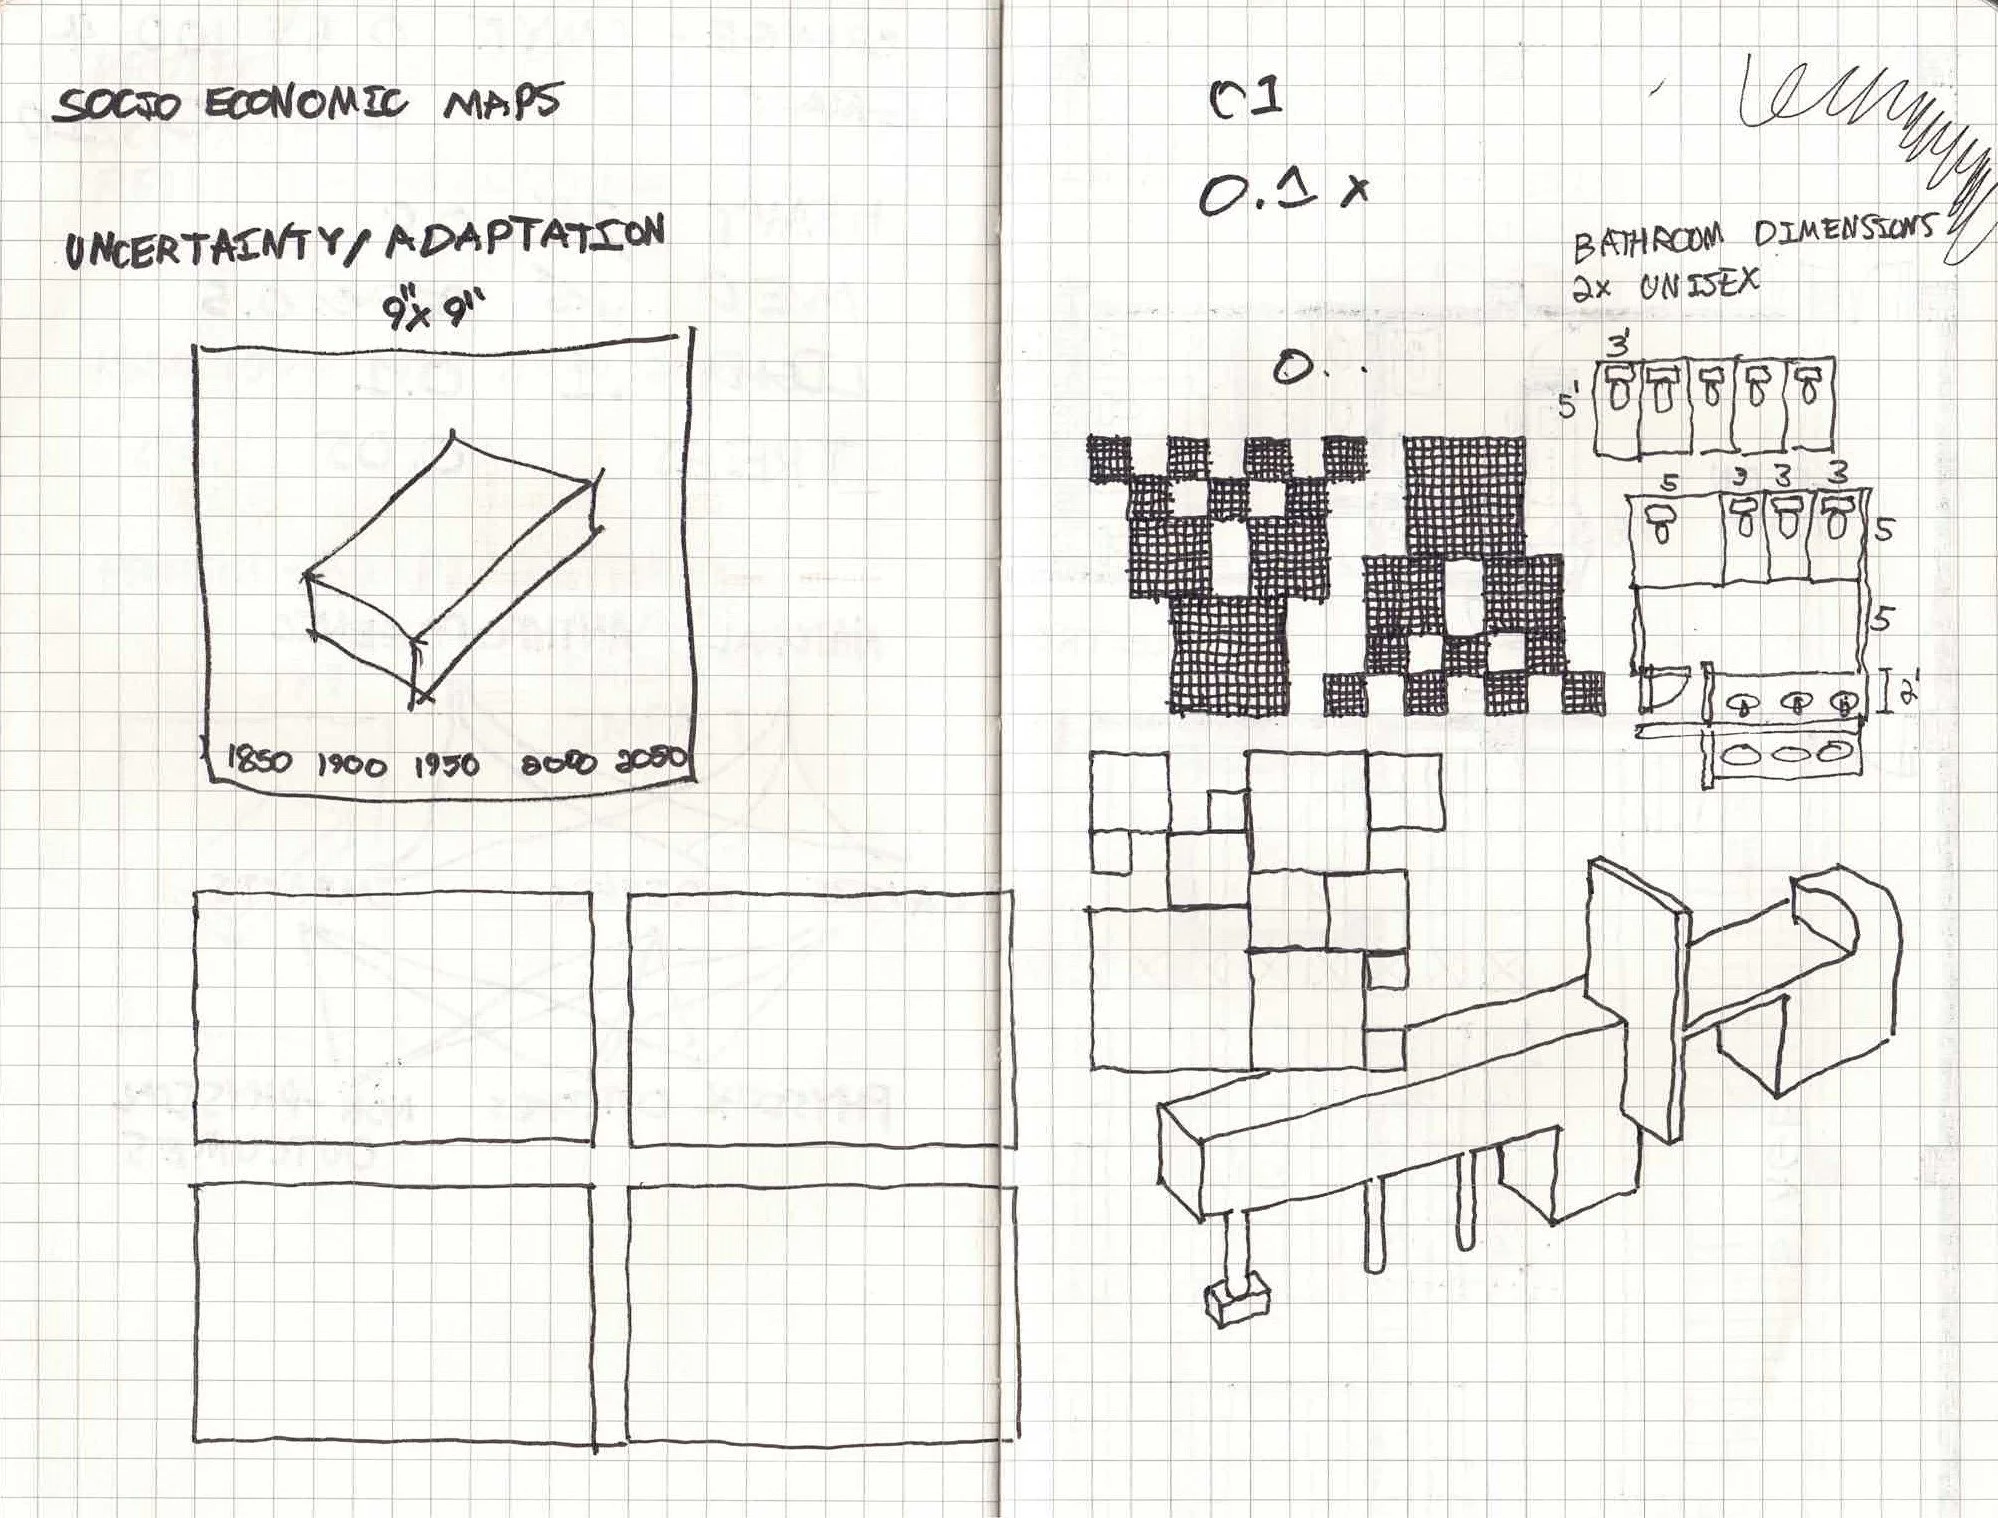 SOCIO ECONOMIC MAPS
UNCERTAINTY/ADAPTATION
9"x 9"
1850 1900 1950 2000 2050
01
0.1 x
0..
BATHROOM DIMENSIONS
2x UNISEX
3'
5'
5 3 3 3
5
5
2'